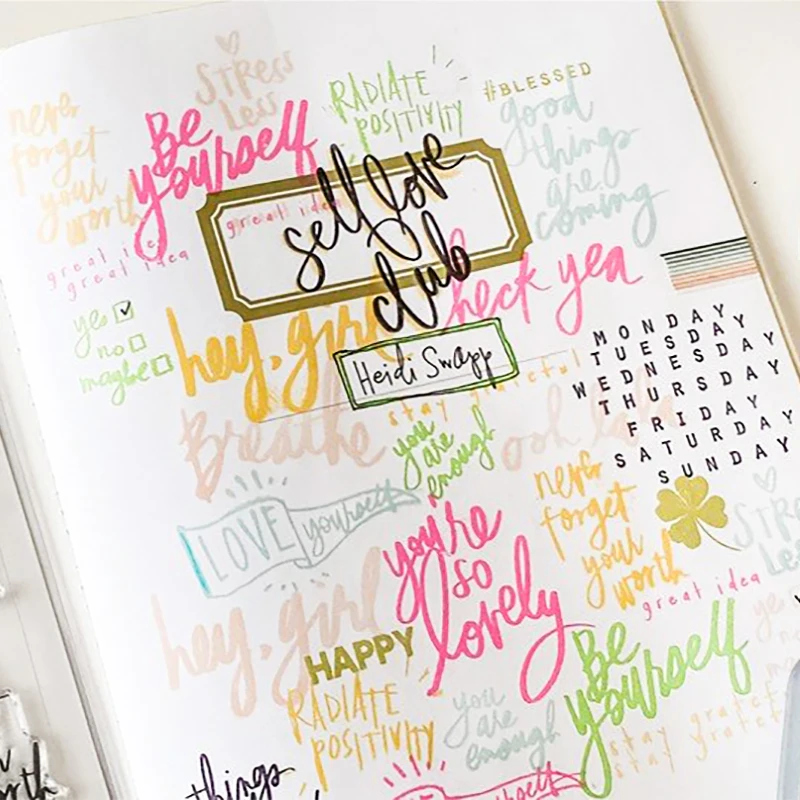 stress
less
RADIATE
POSITIVITY
#BLESSED
good
things
are
coming
never
forget
your
worth
Be
yourself
great idea
self love
club
great idea
great idea
yes
no
maybe
hey, girl
heck yea
Heidi Swapp
MONDAY
TUESDAY
WEDNESDAY
THURSDAY
FRIDAY
SATURDAY
SUNDAY
stay grateful
Breathe
you
are
enough
ooh lala
LOVE yourself
you're
so
lovely
never
forget
your
worth
stress
less
great idea
hey, girl
HAPPY
RADIATE
POSITIVITY
you
are
enough
Be
yourself
yes
stay grateful
stay grateful
things
yourself